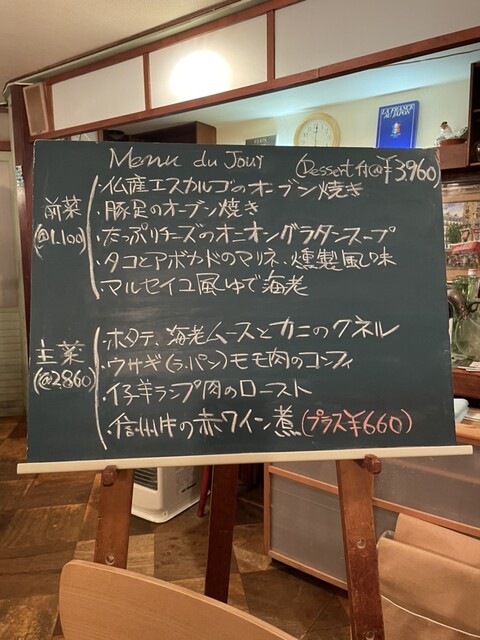 LA FRANCE
AU JAPON
Menu du Jour (Dessert付@¥3,960)
前菜
(@1,100)
・仏産エスカルゴのオーブン焼き
・豚足のオーブン焼き
・たっぷりチーズのオニオングラタンスープ
・タコとアボカドのマリネ、燻製風味
・マルセイユ風ゆで海老
主菜
(@2860)
・ホタテ、海老ムースとカニのクネル
・ウサギ(ラパン)モモ肉のコンフィ
・仔羊ランプ肉のロースト
・信州牛の赤ワイン煮(プラス¥660)